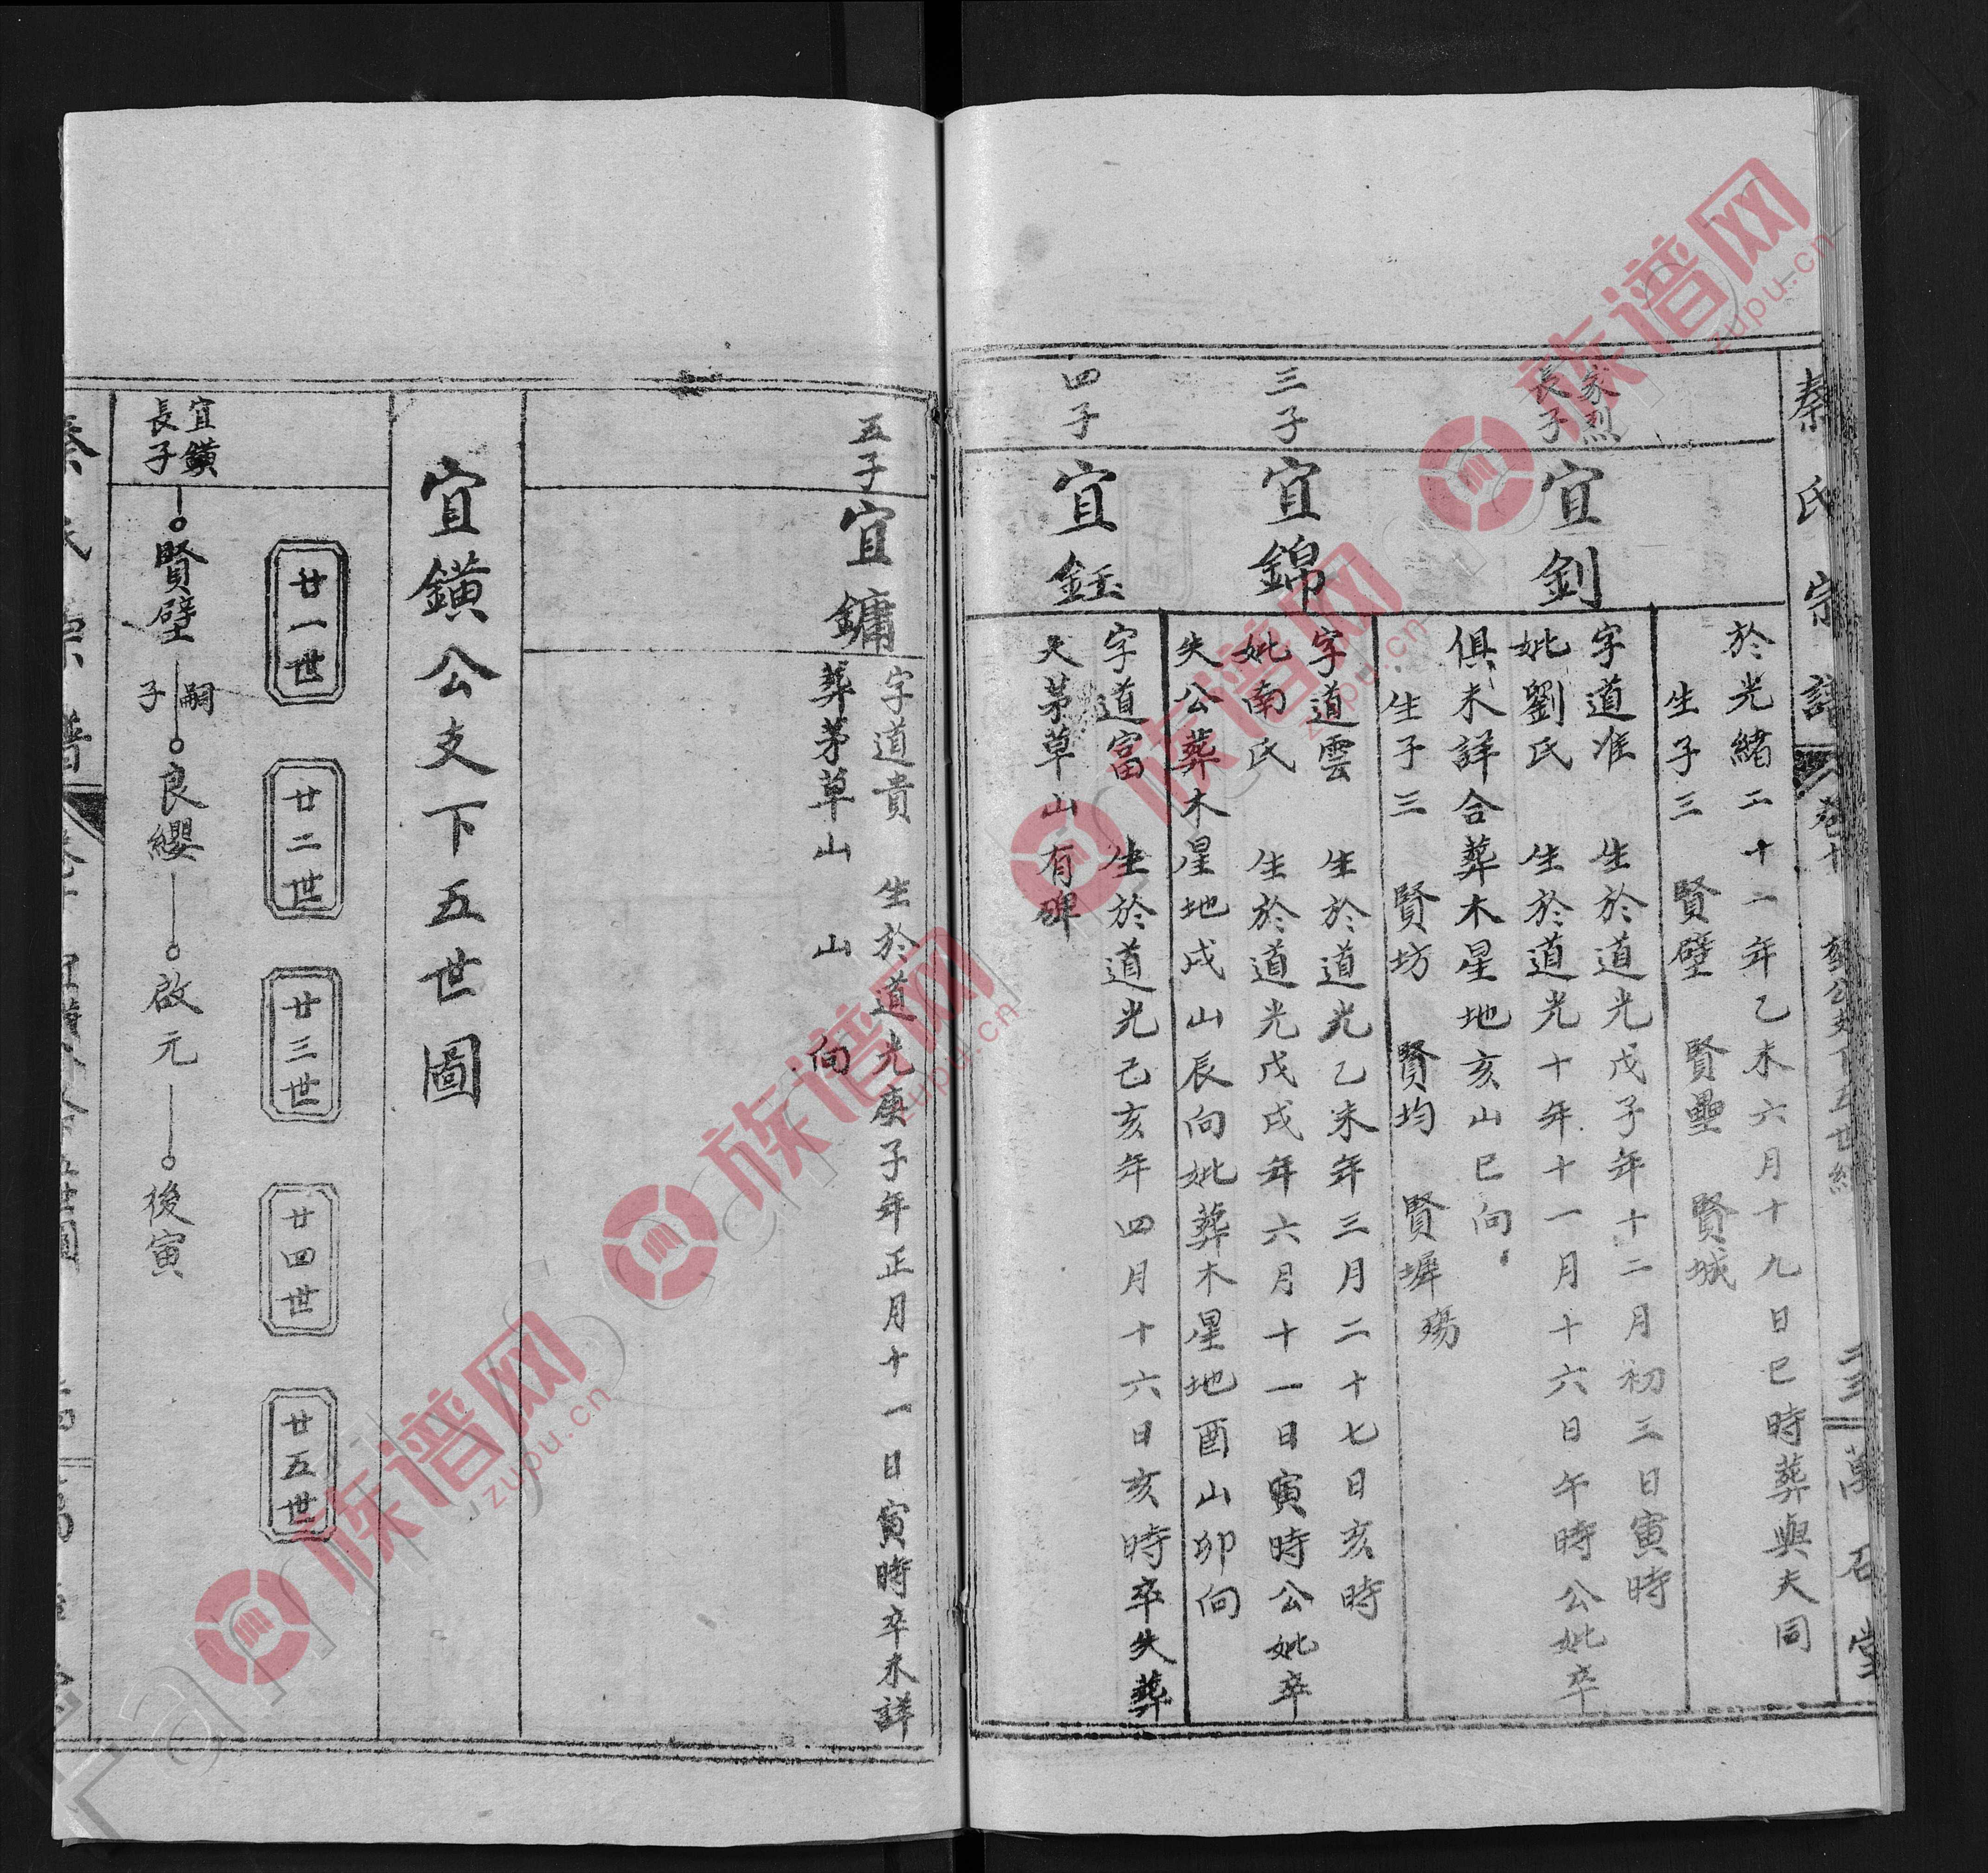 秦氏宗譜
卷十
公支下五世紀
二三
萬石堂
於光緒二十一年乙未六月十九日巳時葬與夫同
生子三 賢璧 賢壘 賢城
家烈
長子
宜釗
字道准 生於道光戊子年十二月初三日寅時
妣劉氏 生於道光十年十一月十六日午時公妣卒
俱未詳合葬木星地亥山巳向
生子三 賢坊 賢均 賢墀殤
三子
宜錦
字道雲 生於道光乙未年三月二十七日亥時
妣南氏 生於道光戊戌年六月十一日寅時公妣卒
失公葬木星地戌山辰向妣葬木星地酉山卯向
四子
宜鈺
字道富 生於道光己亥年四月十六日亥時卒失葬
大茅草山有碑
五子
宜鏞
字道貴 生於道光庚子年正月十一日寅時卒未詳
葬茅草山 山 向
宜鐄公支下五世圖
廿一世
廿二世
廿三世
廿四世
廿五世
宜鐄
長子
賢璧
嗣
子
良纓
啟元
後寅
族谱网
zupu.cn
族谱网
zupu.cn
族谱网
zupu.cn
族谱网
zupu.cn